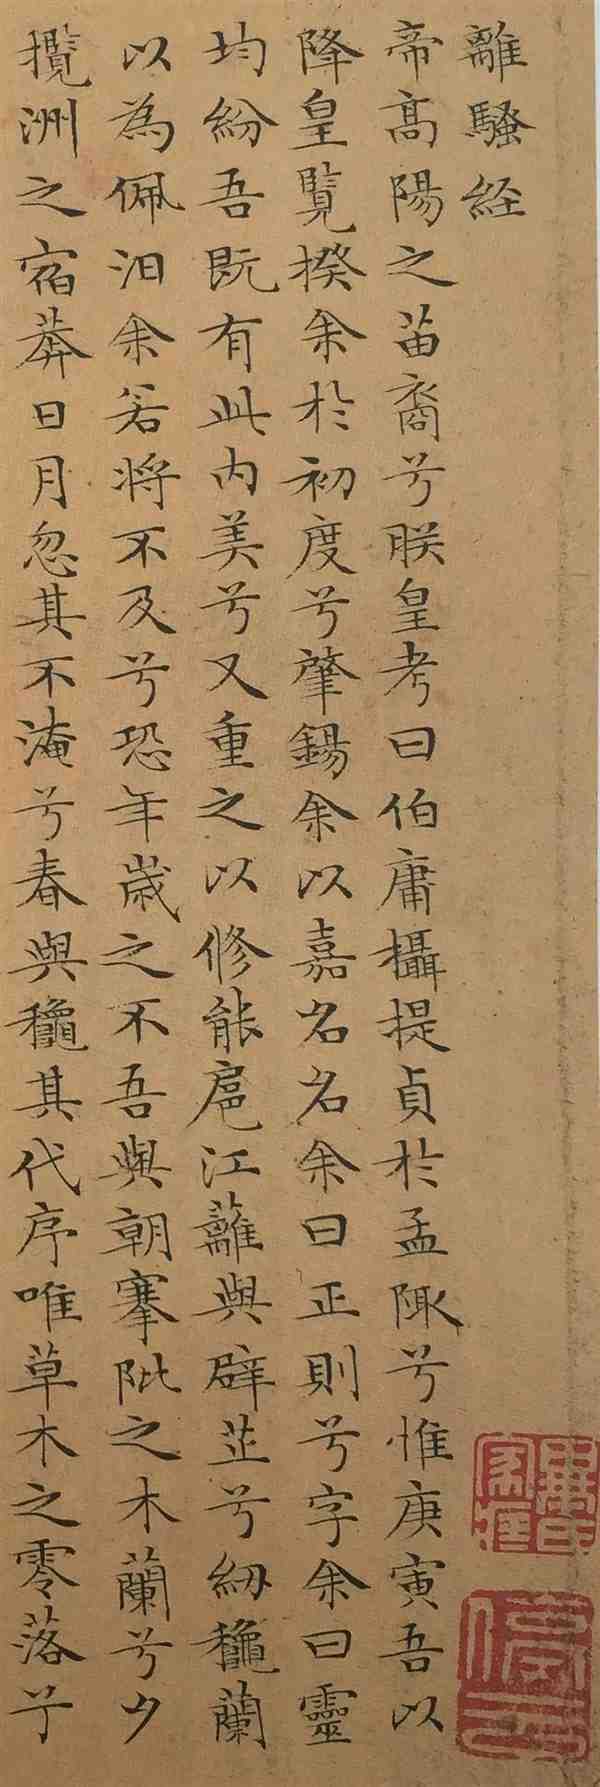 離騷経
帝高陽之苗裔兮朕皇考曰伯庸攝提貞於孟陬兮惟庚寅吾以
降皇覧揆余於初度兮肇錫余以嘉名名余曰正則兮字余曰靈
均紛吾既有此内美兮又重之以修能扈江蘺與辟芷兮紉龝蘭
以為佩汩余若将不及兮恐年歲之不吾與朝搴阰之木蘭兮夕
攬洲之宿莽日月忽其不淹兮春與龝其代序唯草木之零落兮
停云